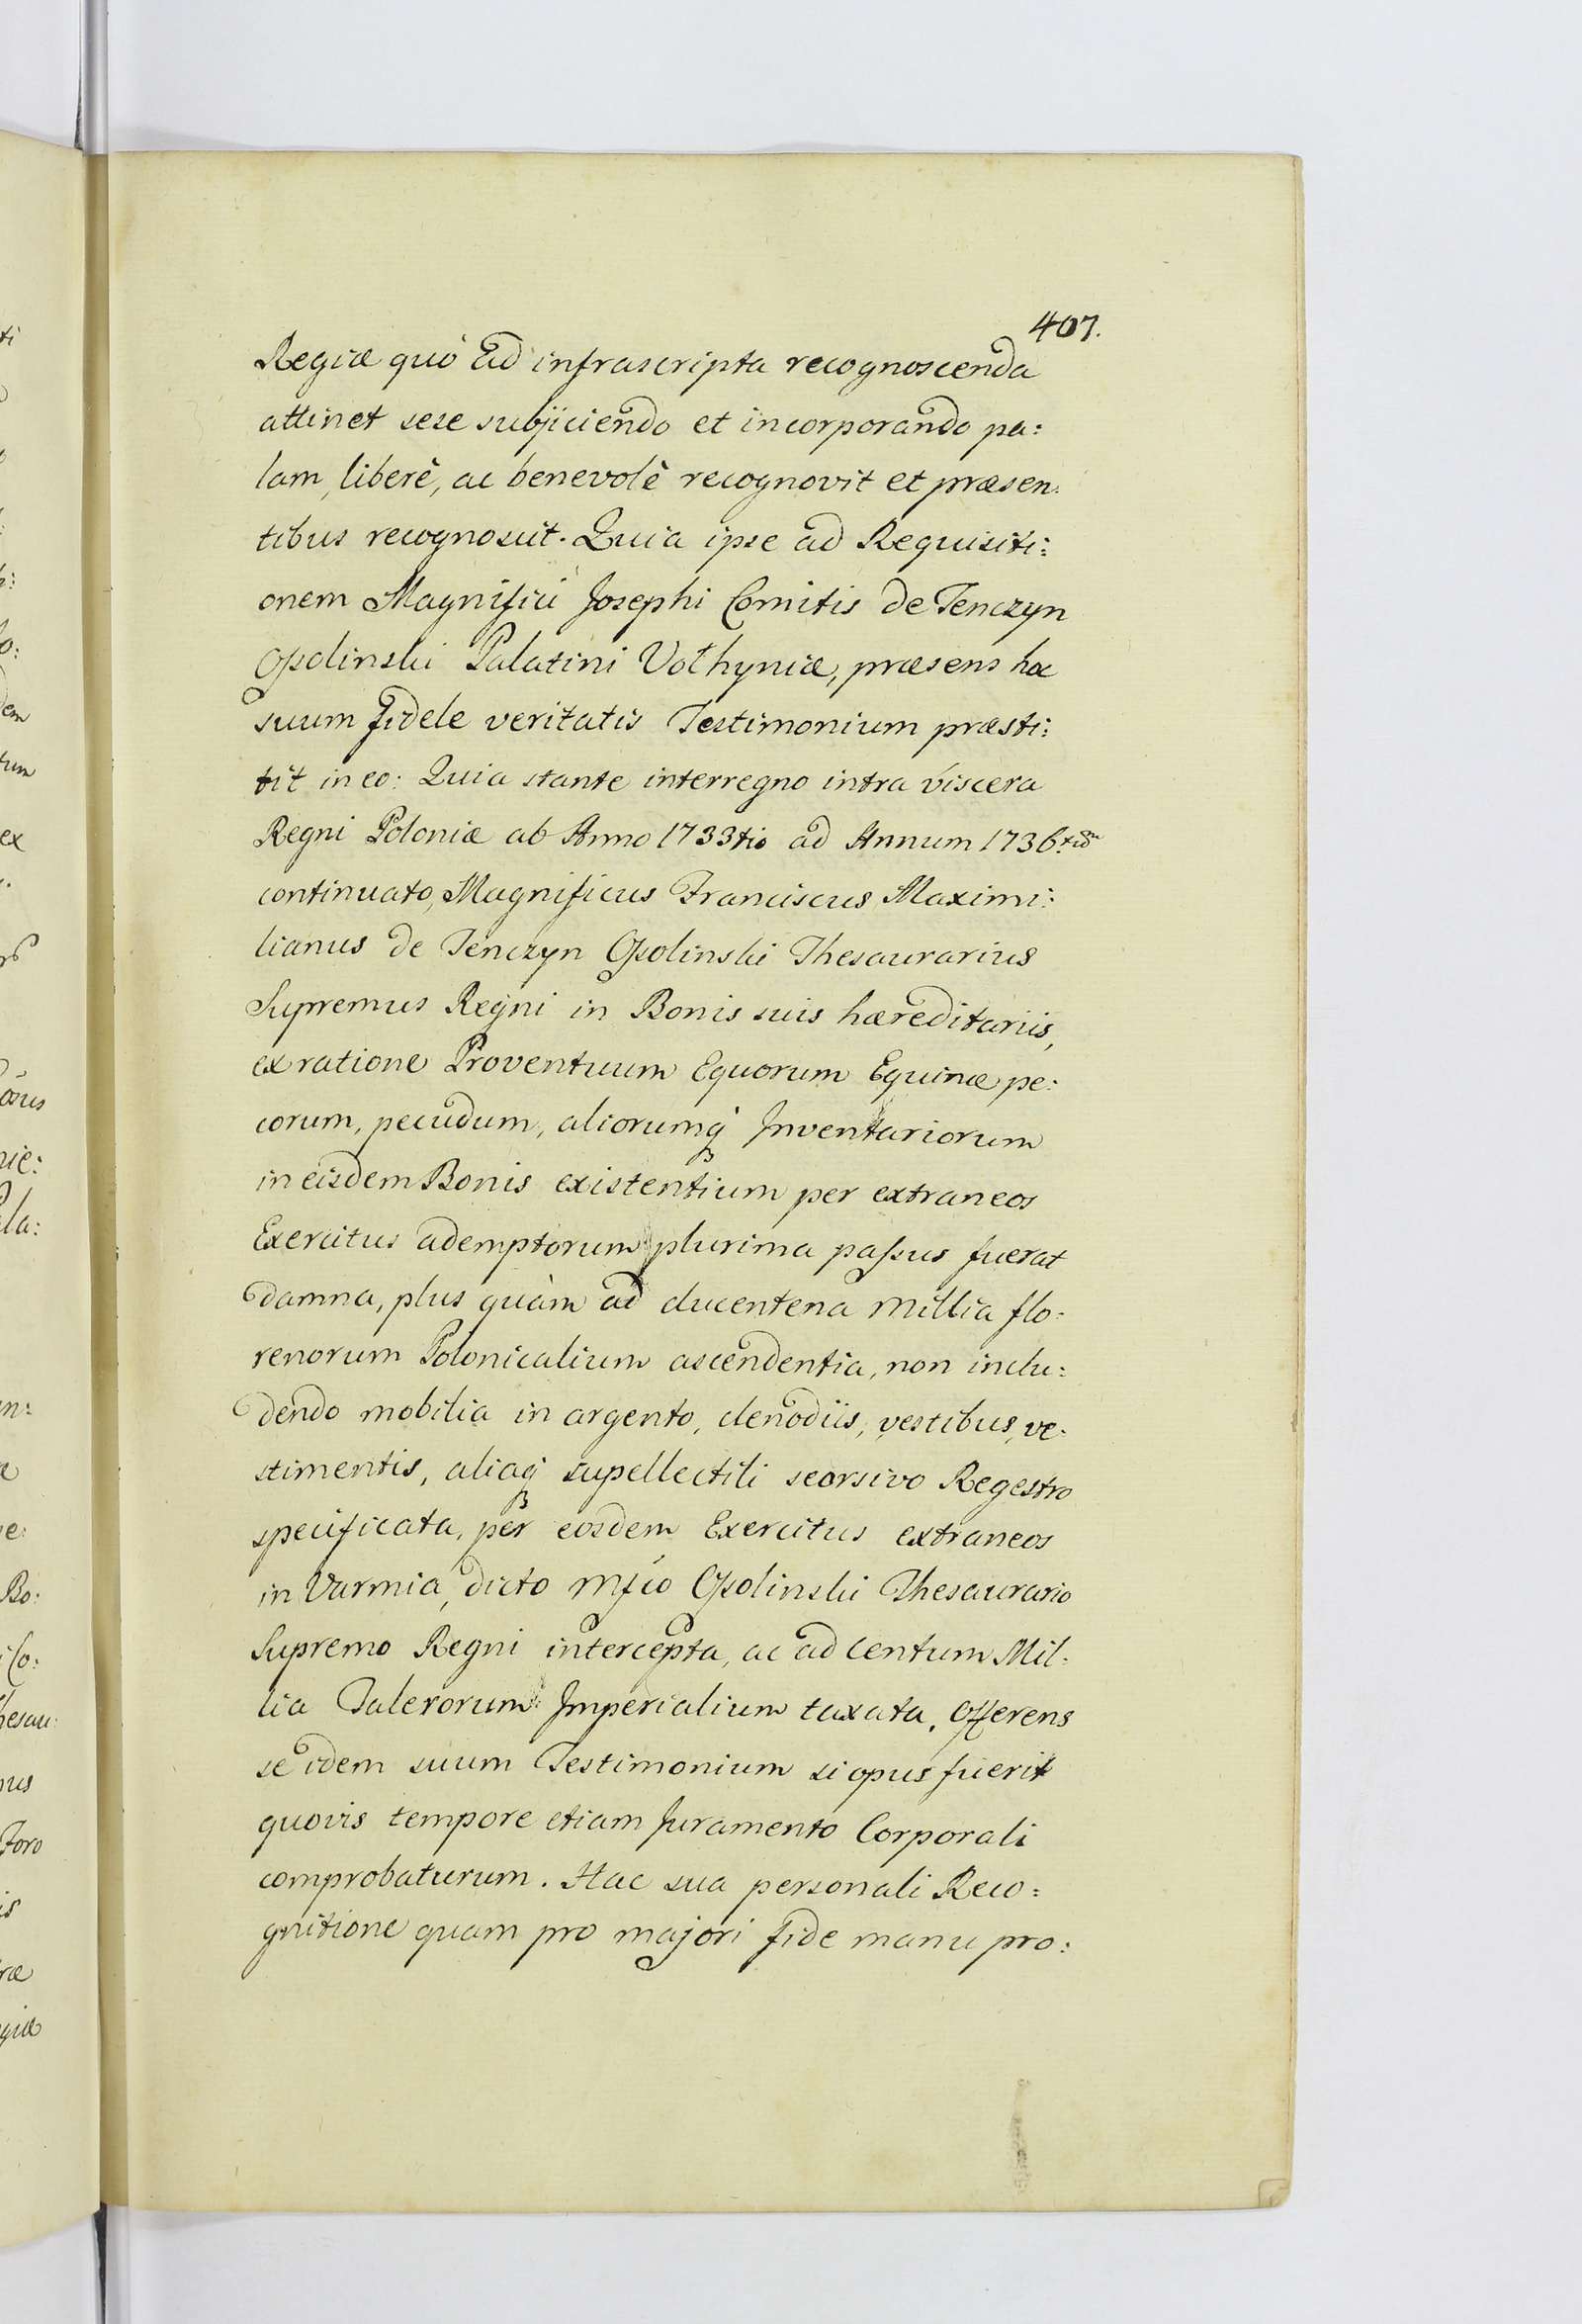 407.
Regiæ quò ad infrascripta recognoscenda
attinet sese subjiciendo et incorporando pa:
lam, liberè, ac benevolè recognovit et præsen:
tibus recognoscit. Quia ipse ad Requisiti:
onem Magnifici Josephi Comitis de Tenczyn
Ossolinski Palatini Volhyniæ, præsens hoc
suum fidele veritatis Testimonium præsti:
tit in eo: Quia stante interregno intra viscera
Regni Poloniæ ab Anno 1733tio ad Annum 1736tum
continuato, Magnificus Franciscus Maximi:
lianus de Tenczyn Ossolinski Thesaurarius
Supremus Regni in Bonis suis hæreditariis,
ex ratione Proventuum Equorum Equinæ pe:
corum, pecudum, aliorumq Inventariorum
in eisdem Bonis existentium per extraneos
Exercitus ademptorum plurima passus fuerat
damna, plus quàm ad ducentena Millia flo:
renorum Polonicalium ascendentia, non inclu:
dendo mobilia in argento, clenodiis, vestibus, ve:
stimentis, aliaq supellectili seorsivo Regestro
specificata, per eosdem Exercitus extraneos
in Varmia, dicto Mfco Ossolinski Thesaurario
Supremo Regni intercepta, ac ad Centum Mil:
lia Talerorum Imperialium taxata. Offerens
se idem suum Testimonium si opus fuerit
quovis tempore etiam Juramento Corporali
comprobaturum. Hac sua personali Reco:
gnitione quam pro majori fide manu pro: